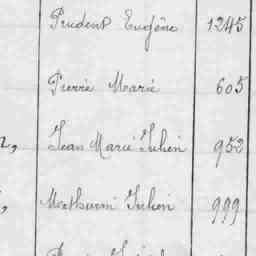 Prudent Eugène 1245
Pierre Marie 605
Jean Marie Julien 952
Mathurin Julien 999